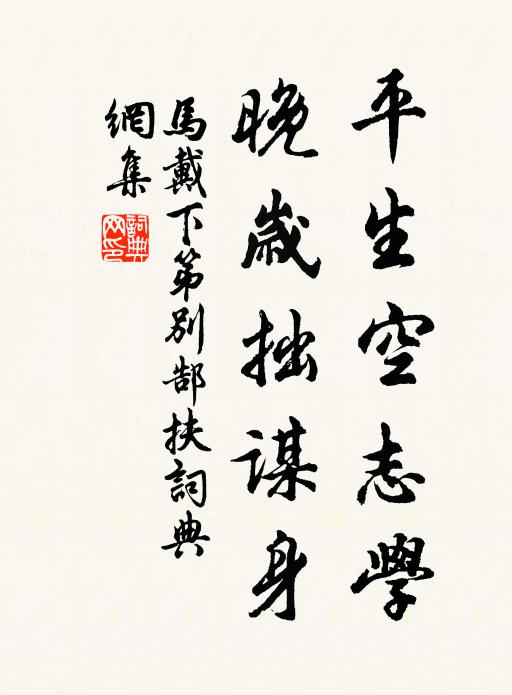 平生空志學
晚歲拙謀身
馬戴下第別郜扶詞典
網集
詞典網印